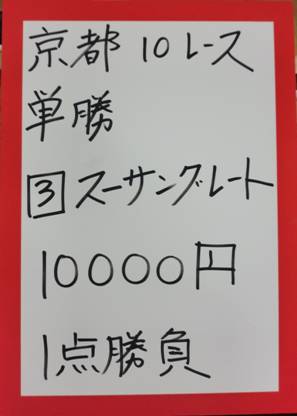 京都10レース
単勝
3スーサングレート
10000円
1点勝負